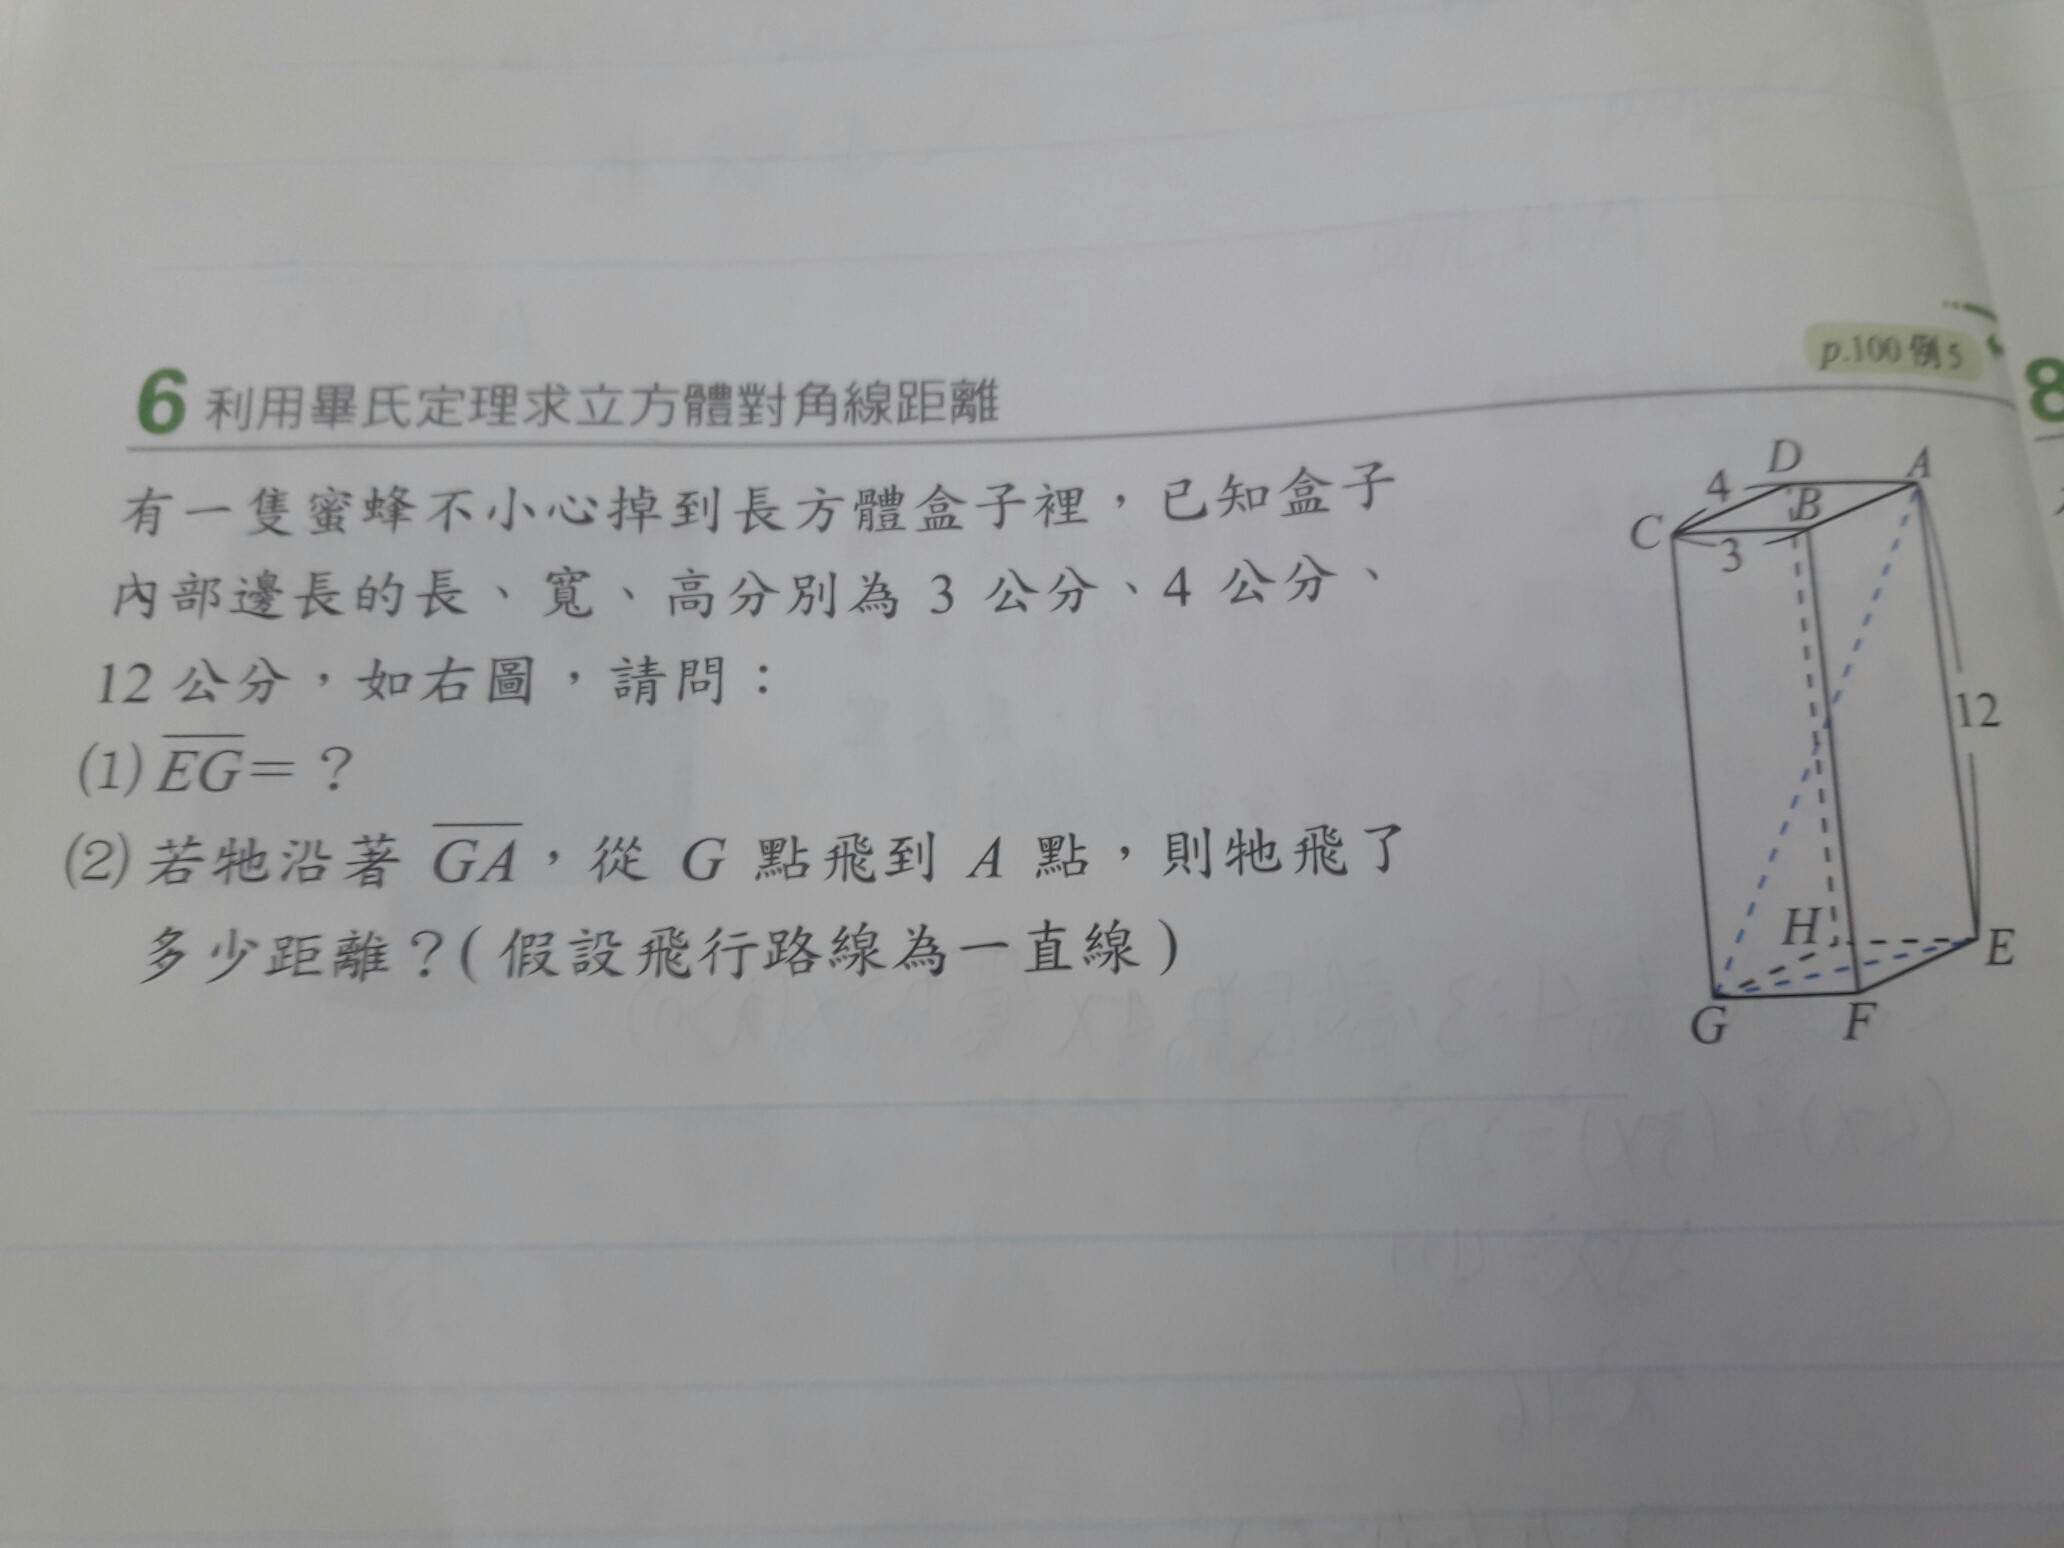 p.100 例5
6 利用畢氏定理求立方體對角線距離
8
有一隻蜜蜂不小心掉到長方體盒子裡，已知盒子
內部邊長的長、寬、高分別為 3 公分、4 公分、
12 公分，如右圖，請問：
(1) EG＝？
(2) 若牠沿著 GA，從 G 點飛到 A 點，則牠飛了
多少距離？(假設飛行路線為一直線)
D
A
4
B
C
3
12
H
E
G
F